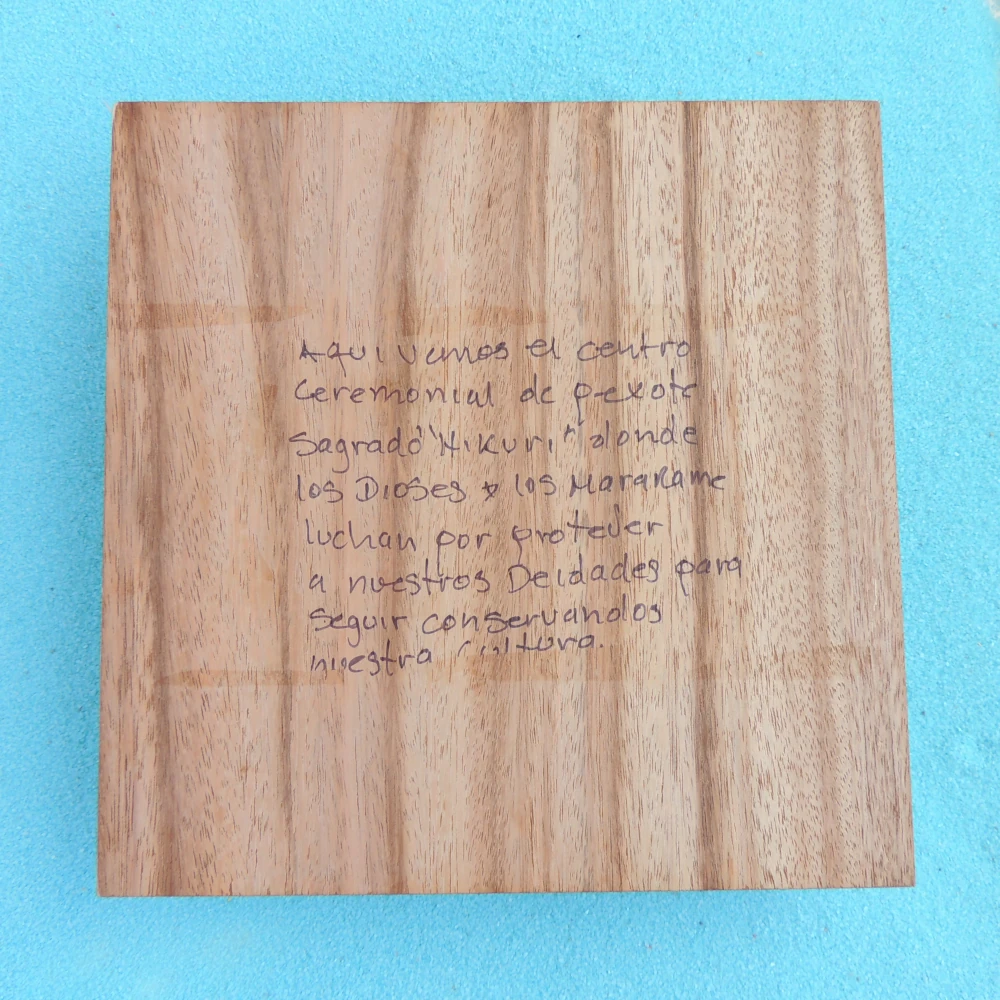 Aqui vemos el centro
Ceremonial de pexote
Sagrado "Hikuri" donde
los Dioses y los Mararame
luchan por proteger
a nuestros Deidades para
seguir conservandos
nuestra Cultura.